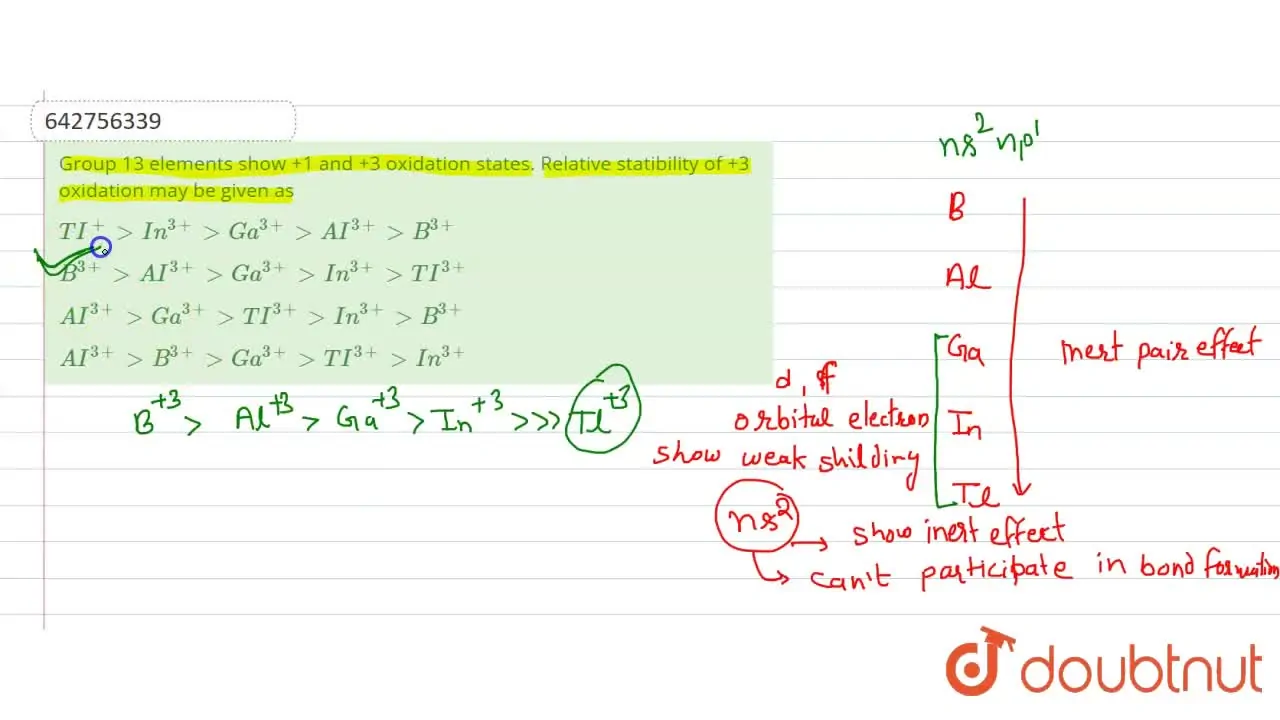 642756339
Group 13 elements show +1 and +3 oxidation states. Relative statibility of +3
oxidation may be given as
TI⁺ > In³⁺ > Ga³⁺ > AI³⁺ > B³⁺
B³⁺ > AI³⁺ > Ga³⁺ > In³⁺ > TI³⁺
AI³⁺ > Ga³⁺ > TI³⁺ > In³⁺ > B³⁺
AI³⁺ > B³⁺ > Ga³⁺ > TI³⁺ > In³⁺
B⁺³ > Al⁺³ > Ga⁺³ > In⁺³ >>> Tl⁺³
ns² np¹
B
Al
Ga
In
Tl
inert pair effect
d, f
orbital electron
show weak shilding
ns²
show inert effect
can't participate in bond formation
doubtnut